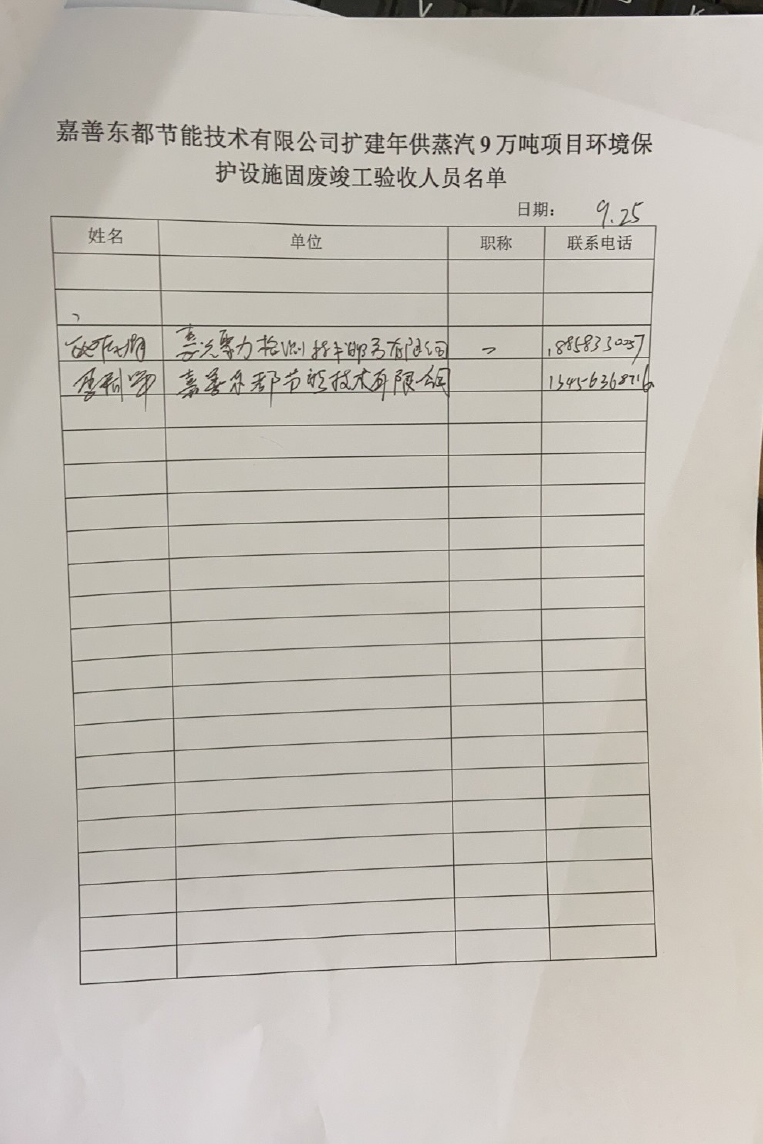 嘉善东都节能技术有限公司扩建年供蒸汽9万吨项目环境保
护设施固废竣工验收人员名单
日期： 9.25
姓名 单位 职称 联系电话
检测技术服务有限公司
嘉善东都节能技术有限公司